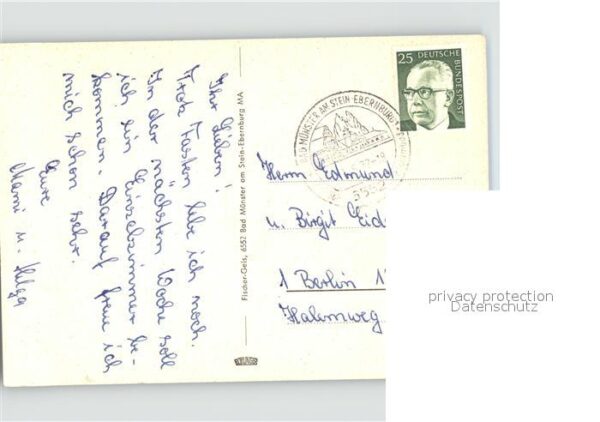 Ihr Lieben!
Trotz Fasten lebe ich noch.
In der nächsten Woche soll
ich ein Einzelzimmer be-
kommen. Darauf freue ich
mich schon sehr.
Eure
Mami u. Helga
Fischer-Geis, 6552 Bad Münster am Stein-Ebernburg MA
BAD MÜNSTER AM STEIN-EBERNBURG
25 DEUTSCHE
BUNDESPOST
Herrn Edmund
u. Birgit Eid
1 Berlin 1
Halemweg
privacy protection
Datenschutz